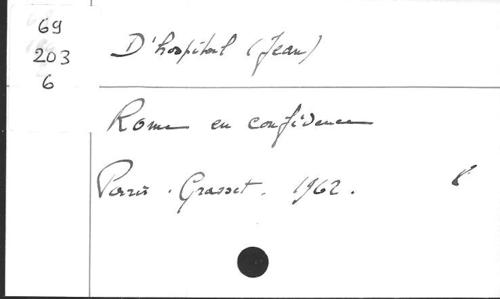 69
203
6
D'hospital (Jean)
Rome en confidence
Paris. Grasset. 1962. 8°